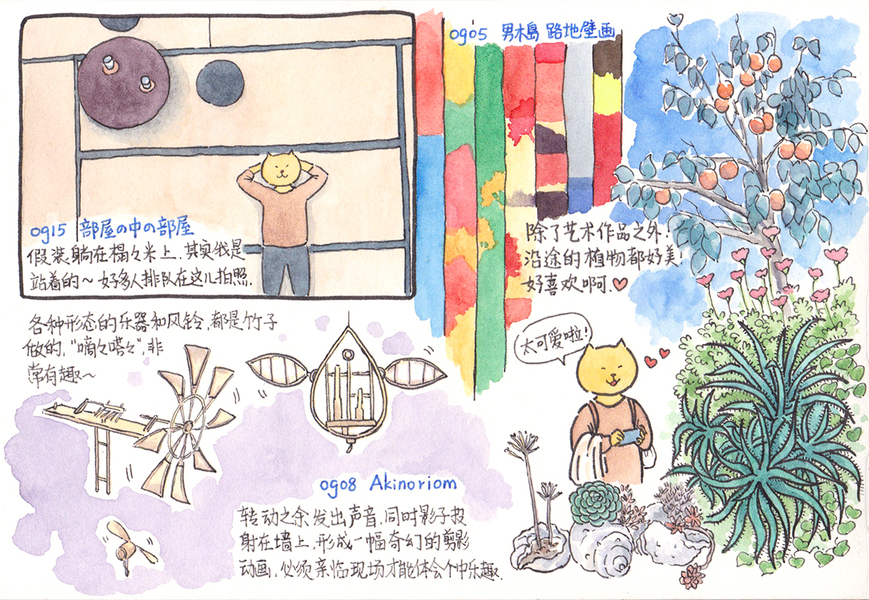 og15 部屋の中の部屋
假装躺在榻々米上,其实我是
站着的~ 好多人排队在这儿拍照.
各种形态的乐器和风铃,都是竹子
做的,"嘀々嗒々",非
常有趣~
og08 Akinoriom
转动之余发出声音,同时影子投
射在墙上,形成一幅奇幻的剪影
动画,必须亲临现场才能体会个中乐趣.
og05 男木島 路地壁画
除了艺术作品之外!
沿途的植物都好美!
好喜欢啊.
太可爱啦!